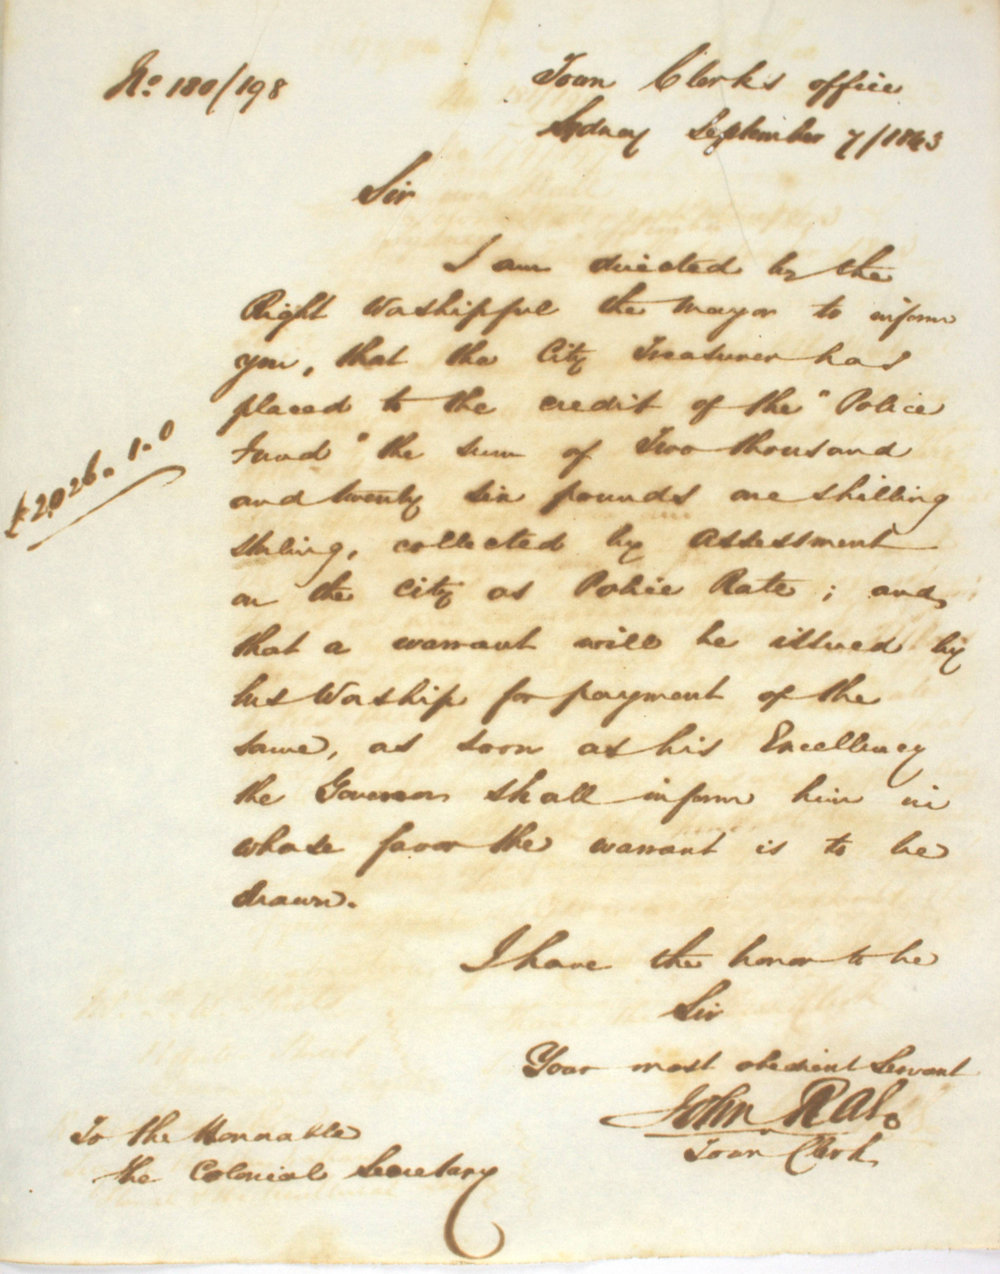 No. 180/198
Town Clerk's office
Sydney September 7/1843
Sir
I am directed by the
Right Worshipful the Mayor to inform
you, that the City Treasurer has
placed to the credit of the "Police
Fund" the sum of Two thousand
and twenty six pounds one shilling
£2,026.1.0
sterling, collected by Assessment
on the City as Police Rate; and
that a warrant will be issued by
his Worship for payment of the
same, as soon as his Excellency
the Governor shall inform him in
whose favor the warrant is to be
drawn.
I have the honor to be
Sir
Your most obedient Servant
John Rae
Town Clerk
To the Honorable
the Colonial Secretary